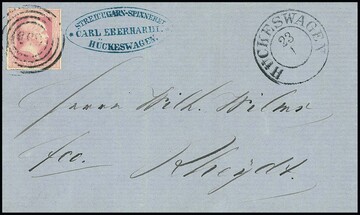 STREICHGARN-SPINNEREI
* CARL EBERHARDT. *
HÜCKESWAGEN.
HÜCKESWAGEN
23
Herrn Wilh. Wilms
fco. Rheydt.